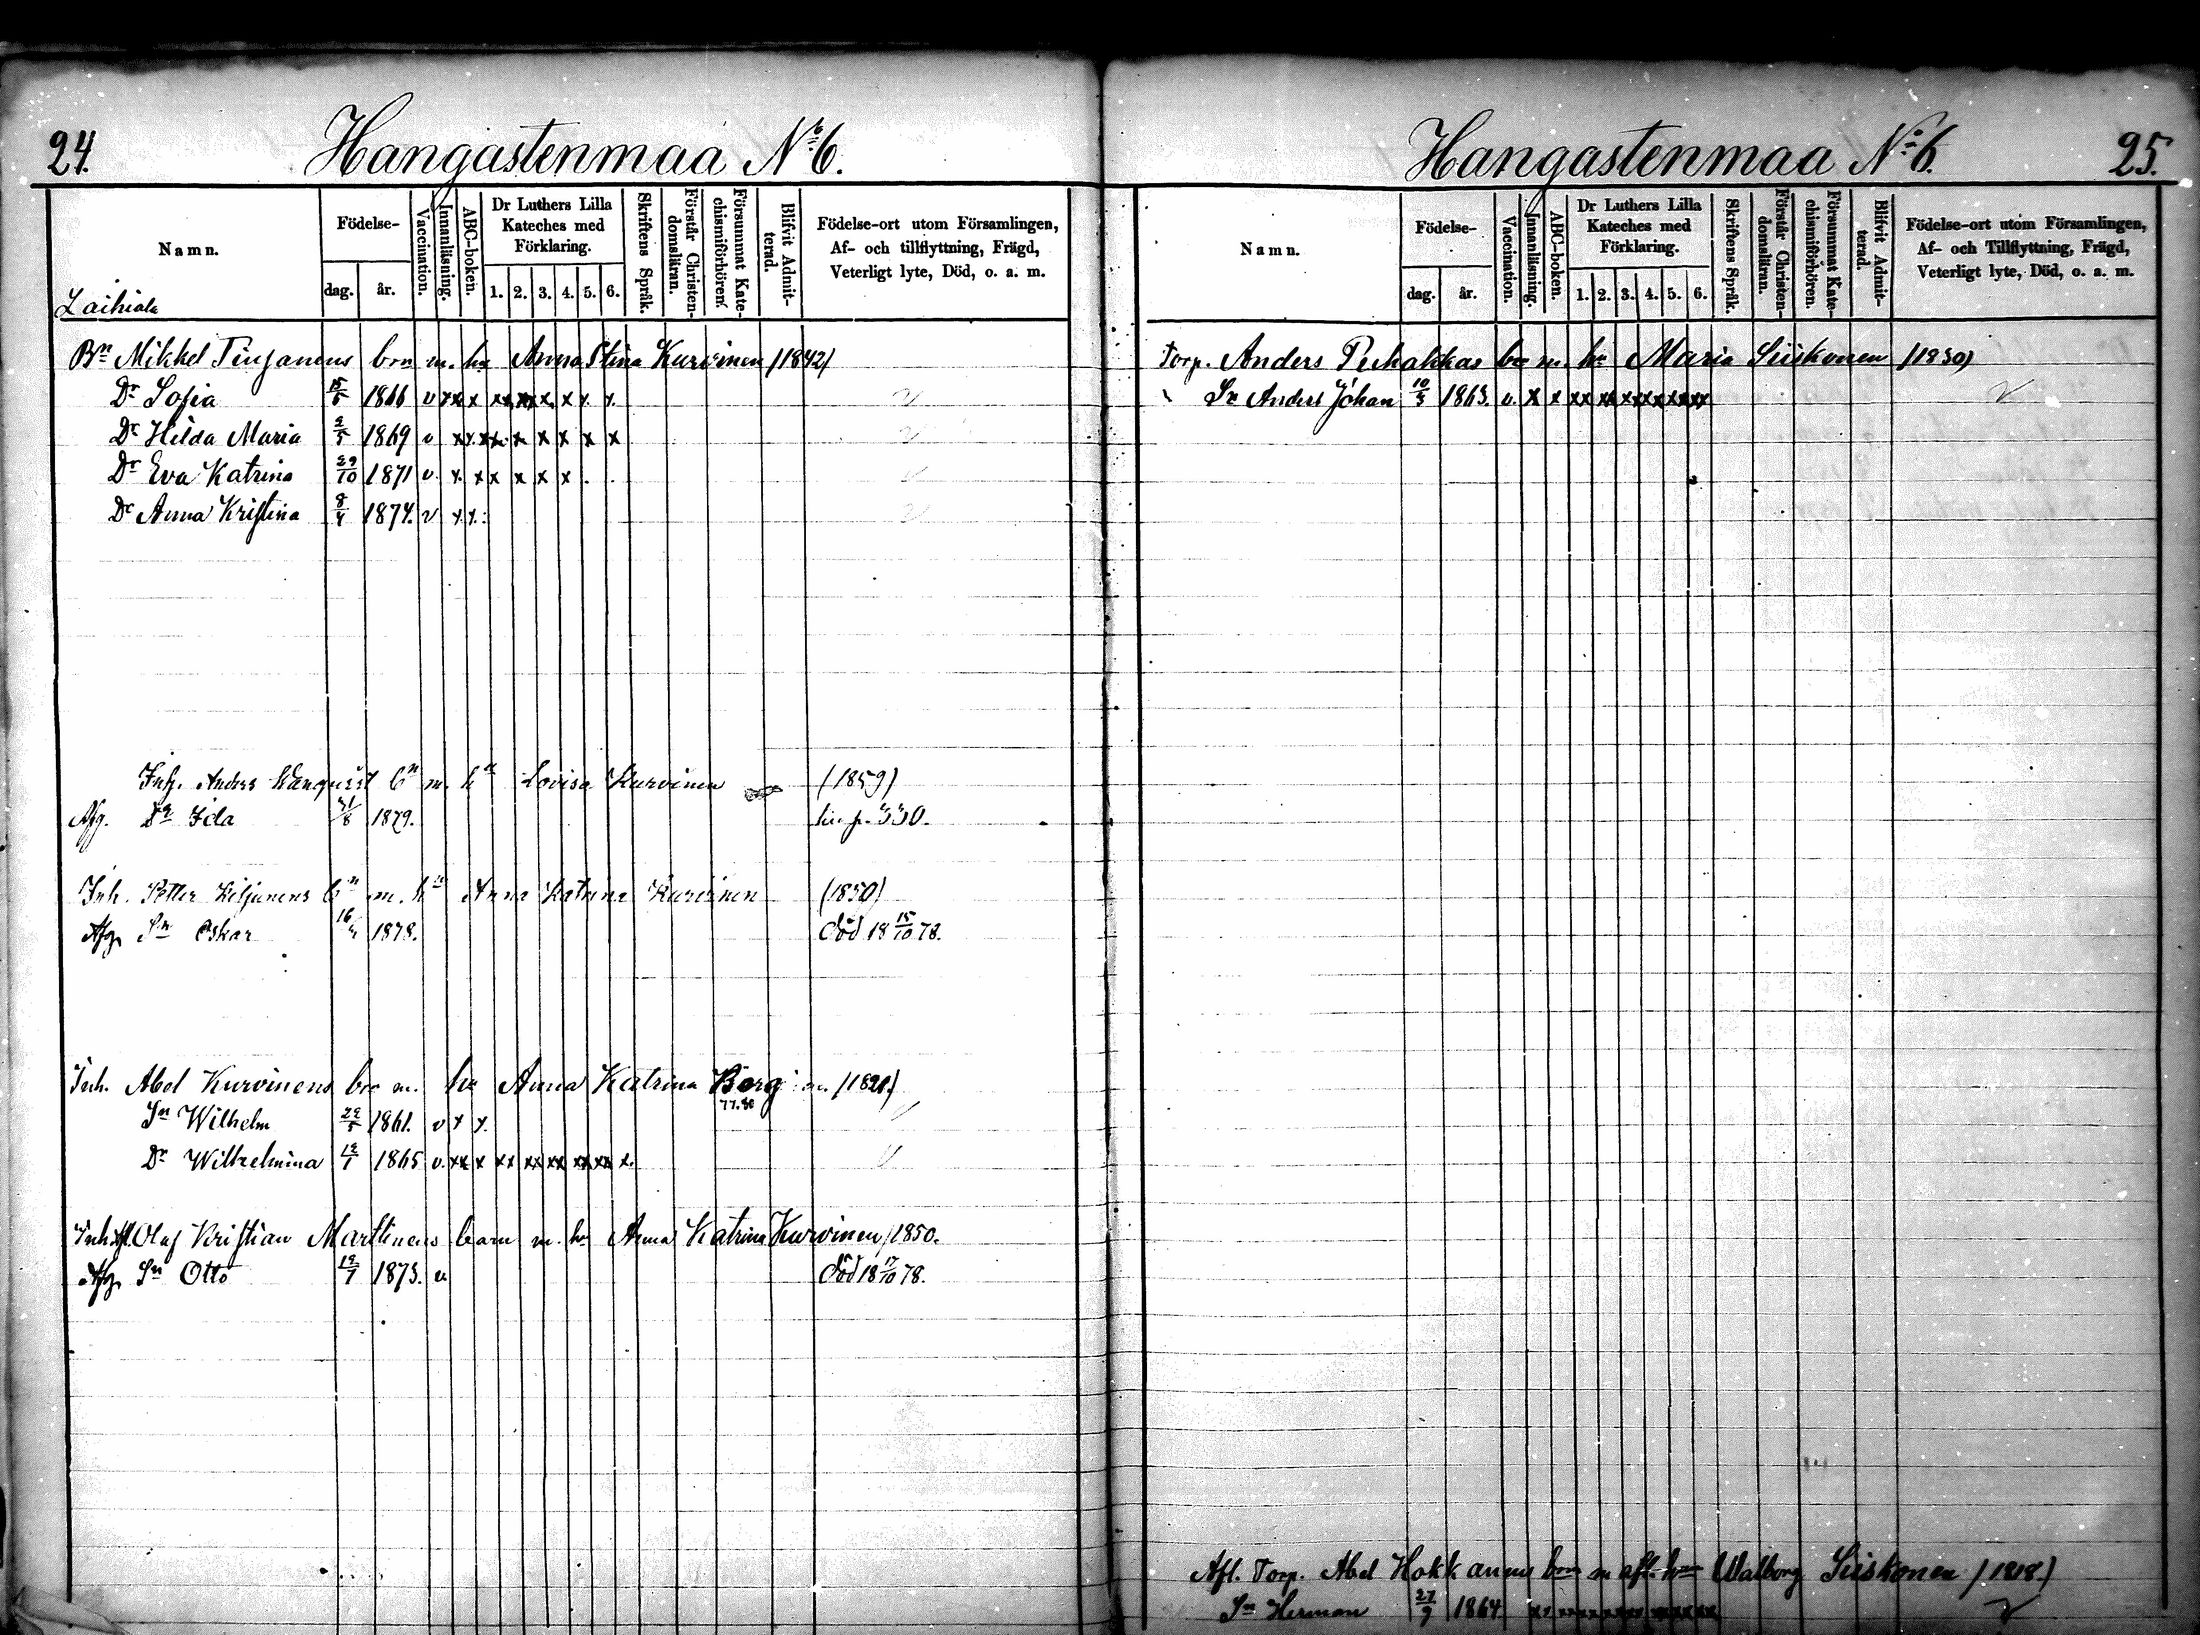 24. Hangastenmaa No 6.
Namn.
Födelse-
dag.
år.
Vaccination.
Innanläsning.
ABC-boken.
Dr Luthers Lilla Kateches med Förklaring.
1. 2. 3. 4. 5. 6.
Skriftens Språk.
Förstår Christendomsläran.
Försummat Katechismiförhören.
Blifvit Admitterad.
Födelse-ort utom Församlingen,
Af- och tillflyttning, Frägd,
Veterligt lyte, Död, o. a. m.
Laihiala
Bn Mikkel Tinjanens brn m. hu Anna Stina Kurvinen (1842)
Dr Sofia 15/5 1866 v xx x xx xx x x x x
Dr Hilda Maria 2/5 1869 v xx xx x x x x x
Dr Eva Katrina 29/10 1871 v. x x x x x x
Dr Anna Kristina 8/4 1874. v x x
Inh. Anders bn m. hu Lovisa Kurvinen (1859)
Afg. Dr Ida 21/8 1879. p. 330.
Inh. Petter Kiljunens bn m. hu Anna Katrina Kurvinen (1850)
Afg. Sn Oskar 1878. död 18 15/10 78.
Inh. Abel Kurvinens brn m. hu Anna Katrina Borg (1821)
77.80
Sn Wilhelm 22/5 1861. v x x.
Dr Wilhelmina 12/1 1865 v. xx x xx xx xx xx xx x.
Inh. Olaf Kristian Martinens barn m. hu Anna Katrina Kurvinen /1850.
Afg. Sn Otto 12/7 1873. v död 18 17/10 78.
Hangastenmaa No 6. 25.
Namn.
Födelse-
dag.
år.
Vaccination.
Innanläsning.
ABC-boken.
Dr Luthers Lilla Kateches med Förklaring.
1. 2. 3. 4. 5. 6.
Skriftens Språk.
Förstår Christendomsläran.
Försummat Katechismiförhören.
Blifvit Admitterad.
Födelse-ort utom Församlingen,
Af- och Tillflyttning, Frägd,
Veterligt lyte, Död, o. a. m.
Torp. Anders Puhakkas brn m. hu Maria Siiskonen (1830)
Sn Anders Johan 10/3 1863. v. x x xx xx xx xx xx xx
Afl. Torp. Abel Hokkanens brn m afl. hu Walborg Siiskonen (1818)
Sn Herman 27/9 1864